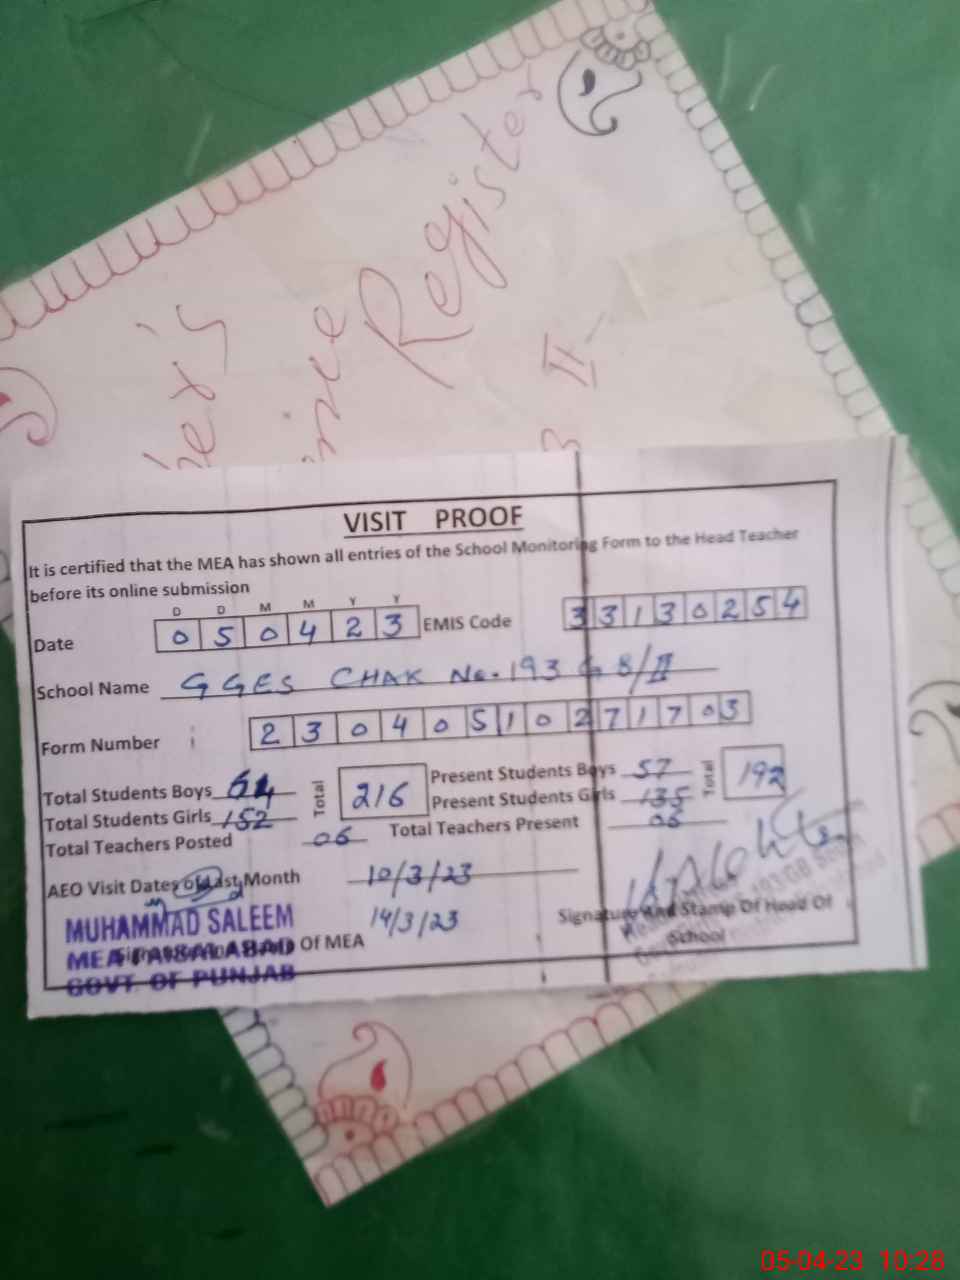 Register
II
VISIT PROOF
It is certified that the MEA has shown all entries of the School Monitoring Form to the Head Teacher
before its online submission
D D M M Y Y
Date 0 5 0 4 2 3 EMIS Code 3 3 1 3 0 2 5 4
School Name GGES CHAK No. 193 GB/II
Form Number 2 3 0 4 0 5 1 0 2 7 1 7 0 3
Total Students Boys 64 Total 216 Present Students Boys 57 Total 192
Total Students Girls 152 Present Students Girls 135
Total Teachers Posted 06 Total Teachers Present 06
AEO Visit Dates of Last Month 10/3/23
14/3/23
MUHAMMAD SALEEM
MEA FAISALABAD Of MEA
GOVT. OF PUNJAB
Signature And Stamp Of Head Of
School
05-04-23 10:28